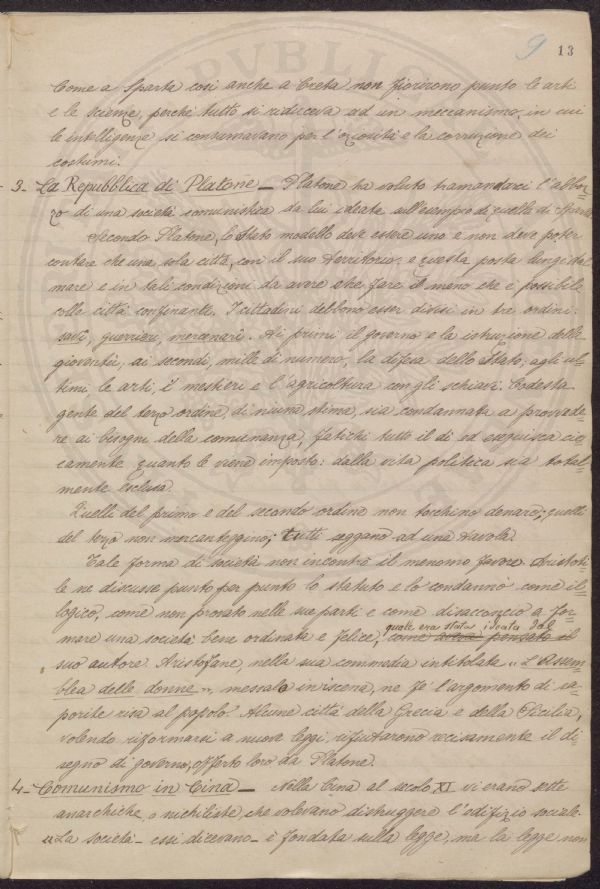 9 13
Come a Sparta così anche a Creta non fiorirono punto le arti
e le scienze, perchè tutto si riduceva ad un meccanismo, in cui
le intelligenze si consumavano per l'oziosità e la corruzione dei
costumi.
3- La Repubblica di Platone - Platone ha voluto tramandarci l'abboz=
zo di una società comunistica da lui ideata sull'esempio di quella di Sparta
Secondo Platone, lo Stato modello deve essere uno e non deve poter
contare che una sola città, con il suo territorio, e questa posta lungi dal
mare e in tali condizioni da avere che fare il meno che è possibile
colle città confinanti. I cittadini debbono esser divisi in tre ordini:
savi, guerrieri, mercenari. Ai primi il governo e la istruzione della
gioventù; ai secondi, mille di numero, la difesa dello Stato; agli ul=
timi le arti, i mestieri e l'agricoltura con gli schiavi. Codesta
gente del terzo ordine, di niuna stima, sia condannata a provvede=
re ai bisogni della comunanza, fatichi tutto il dì ed eseguisca cie=
camente quanto le viene imposto: dalla vita politica sia total=
mente esclusa.
Quelli del primo e del secondo ordine non tocchino denaro; quelli
del terzo non mercanteggino; tutti seggano ad una tavola.
Tale forma di società non incontrò il menomo favore. Aristote=
le ne discusse punto per punto lo statuto e lo condannò come il=
logico, come non provato nelle sue parti e come disacconcio a for=
mare una società bene ordinata e felice, quale era stata ideata dal
come aveva pensato il
suo autore. Aristofane, nella sua commedia intitolata "L'Assem=
blea delle donne", messala in iscena, ne fe' l'argomento di sa=
porite risa al popolo. Alcune città della Grecia e della Sicilia,
volendo riformarsi a nuove leggi rifiutarono recisamente il di=
segno di governo, offerto loro da Platone.
4- Comunismo in Cina - Nella Cina al secolo XI vi erano sette
anarchiche, o nichiliste che volevano distruggere l'edifizio sociale.
"La società - essi dicevano - è fondata sulla legge, ma la legge non